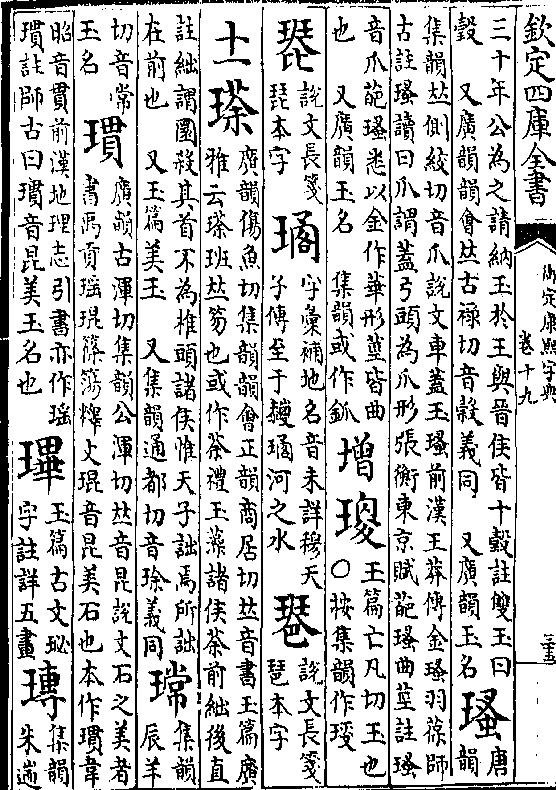 欽定四庫全書
御定康熙字典
卷十九
三十年公為之請納玉於王與晉侯皆十瑴註雙玉曰
瑴 又廣韻韻會𠀤古祿切音榖義同 又廣韻玉名
瑵 唐韻
集韻𠀤側絞切音爪說文車蓋玉瑵前漢王莽傳金瑵羽葆師
古註瑵讀曰爪謂蓋弓頭為爪形張衡東京賦葩瑵曲莖註瑵
音爪葩瑵悉以金作華形莖皆曲
也 又廣韻玉名 集韻或作釽
增 玉篇亡凡切玉也
○按集韻作
說文長箋
琵本字
字彙補地名音未詳穆天
子傳至于 河之水
說文長箋
琶本字
十一
瑹 廣韻傷魚切集韻韻會正韻商居切𠀤音書玉篇廣
雅云瑹珽𠀤笏也或作荼禮玉藻諸侯荼前絀後直
註絀謂圜殺其首不為椎頭諸侯惟天子詘焉所詘
在前也 又玉篇美玉 又集韻通都切音稌義同
瑺 集韻
辰羊
切音常
玉名
瑻 廣韻古渾切集韻公渾切𠀤音昆說文石之美者
書禹貢瑤琨篠簜釋文琨音昆美石也本作瑻韋
昭音貫前漢地理志引書亦作瑤
瑻註師古曰瑻音昆美玉名也
㻫 玉篇古文珌
字註詳五畫
瑼 集韻
朱遄